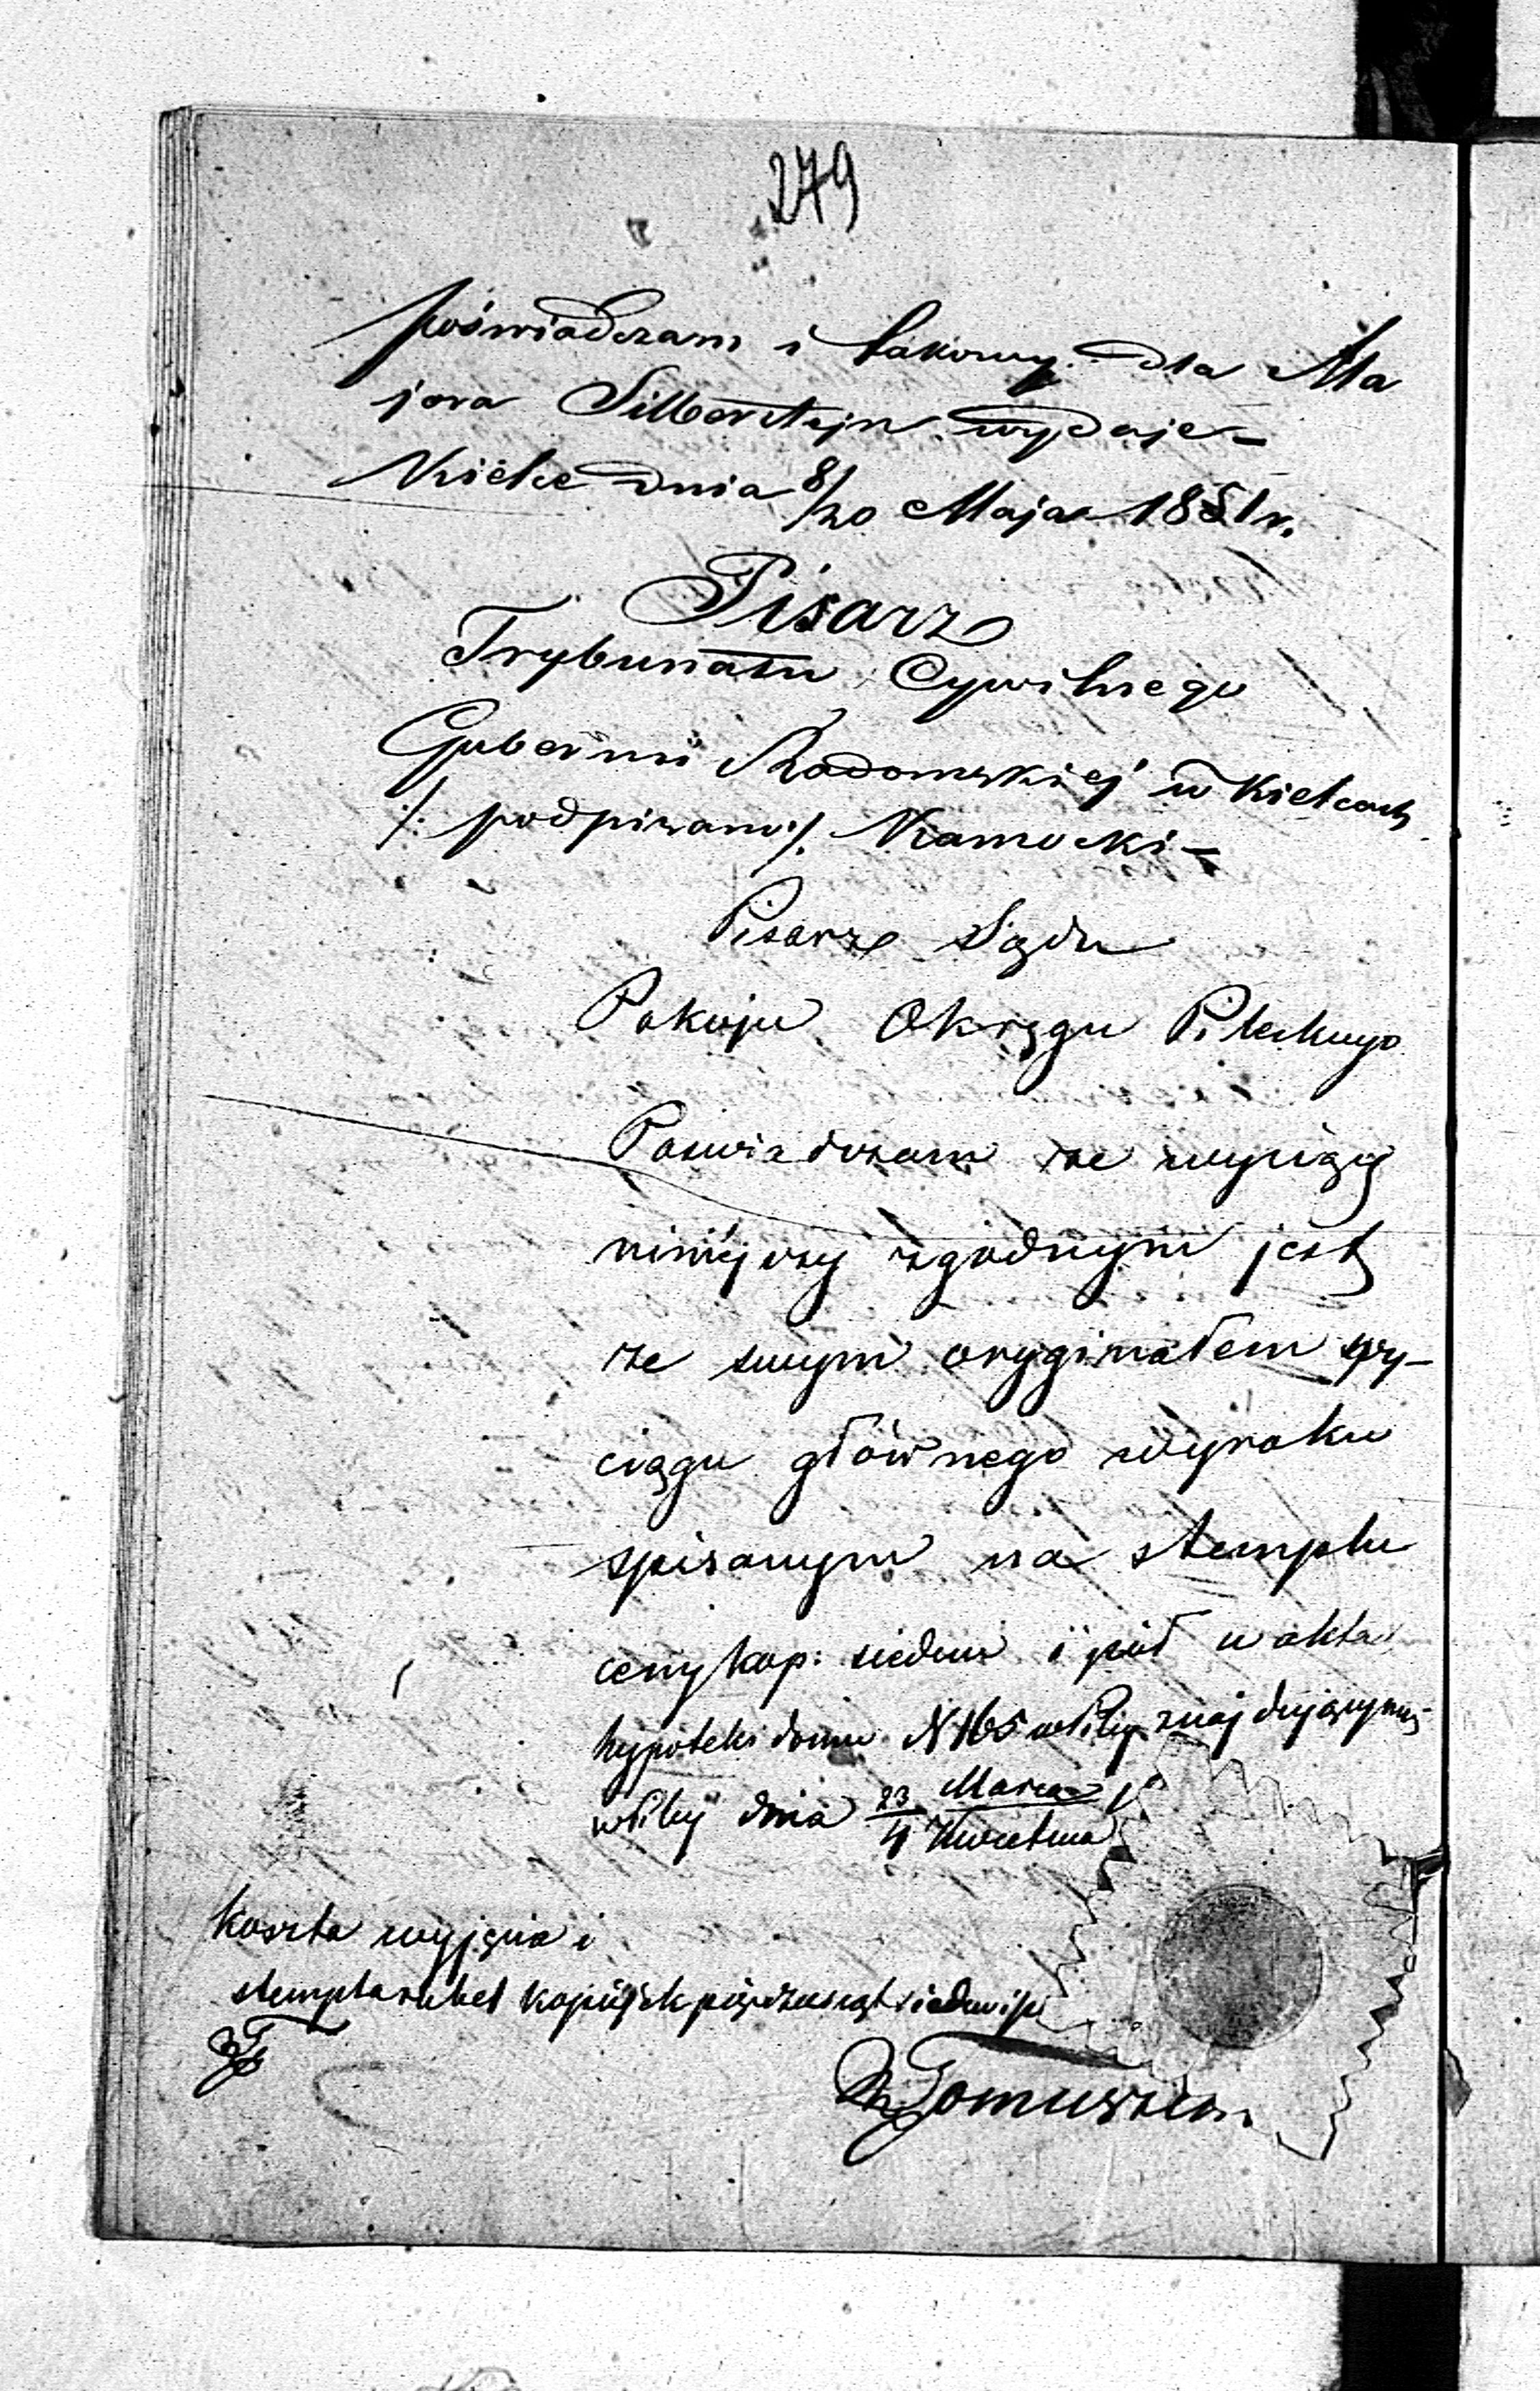 279
poświadczam i takowy dla Ma
jora Silbersztejn wydaje –
Kielce dnia 8/20 Maja 1851 r.
Pisarz
Trybunału Cywilnego
Gubernii Radomskiej w Kielcach
/: podpisano :/ Kamocki –
Pisarz Sądu
Pokoju Okręgu Pileckiego
Poświadczam że wyciąg
niniejszy zgodnym jest
ze swym oryginałem wy-
ciągu głównego wyroku
spisanym na stemplu
ceny kop: siedem i pół w aktach
hypoteki domu N 165 w Pilicy znajdującym się
w Pilicy dnia 23 Marca / 4 Kwietnia
Koszta wyjęcia i
stempla rubel kopiejek pięćdziesiąt siedem i pół
Tomuszew